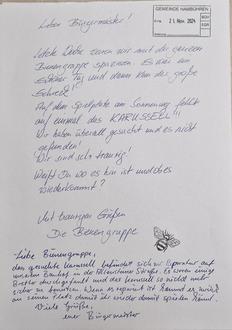 GEMEINDE HAMBÜHREN
21. Nov. 2024
Lieber Bürgermeister!
letzte Woche waren wir mit der ganzen
Bienengruppe spazieren. Es war ein
schöner Tag und dann kam der große
Schreck!"
Auf dem Spielplatz am Sonnenweg fehlt
auf einmal das KARUSSELL!!
Wir haben überall gesucht und es nicht
gefunden!
Wir sind sehr traurig!
Weißt Du wo es hin ist und ob es
wiederkommt?
Mit traurigen Grüßen
Die Bienengruppe
Liebe Bienengruppe,
das gesuchte Karussell befindet sich zur Reparatur auf
unserem Bauhof in der Straße. Es waren einige
Bretter durchgefault und das Karussell so nicht mehr
sicher zu benutzen. Wenn es repariert ist kommt es wieder
an seinen Platz damit ihr wieder damit spielen könnt.
Viele Grüße,
euer Bürgermeister